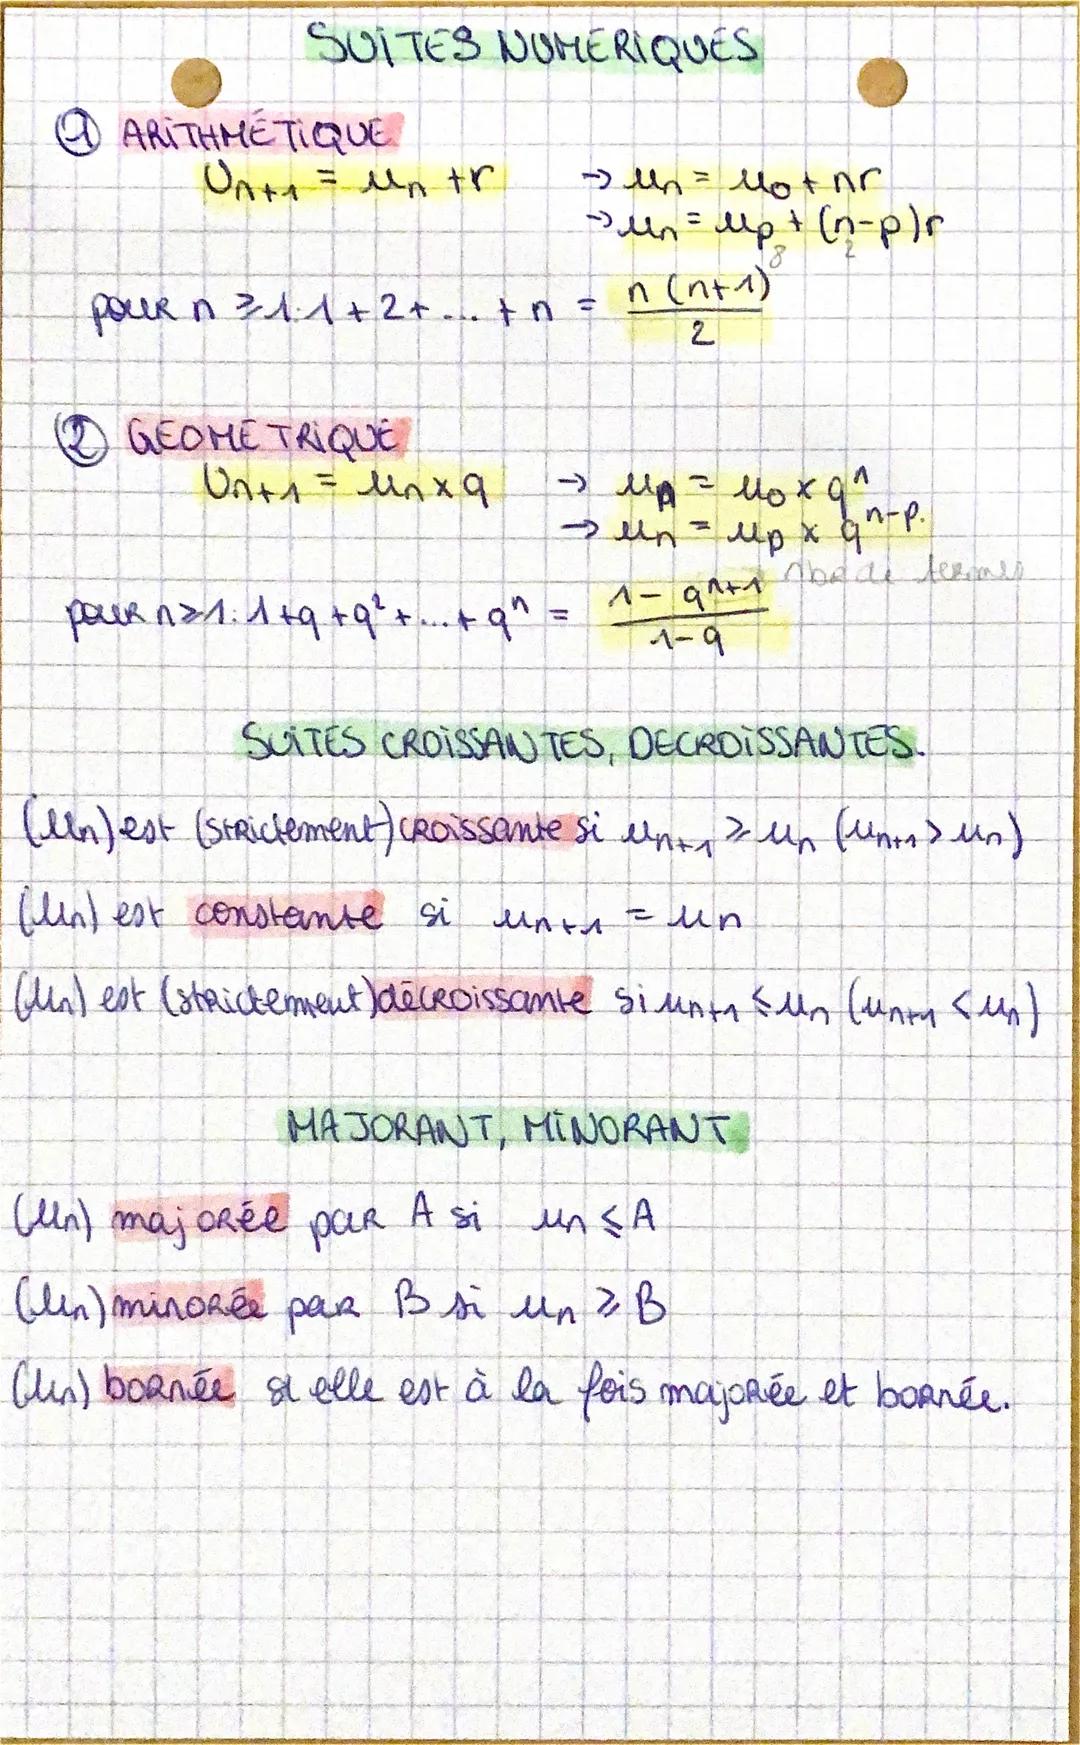 SUITES NUMERIQUES
① ARITHMÉTIQUE
Un+1 = un + r → un = u0 + nr
→ un = up + (n-p)r
8 2
pour n ≥ 1: 1 + 2 + ... + n = n(n+1)/2
② GEOMETRIQUE
Un+1 = un x q → un = u0 x q^n
→ un = up x q^n-p.
nbr de termes
pour n ≥ 1: 1 + q + q² + ... + q^n = (1 - q^n+1)/(1 - q)
SUITES CROISSANTES, DECROISSANTES.
(Un) est (strictement) croissante si un+1 ≥ un (un+1 > un)
(Un) est constante si un+1 = un
(Un) est (strictement) décroissante si un+1 ≤ un (un+1 < un)
MAJORANT, MINORANT
(Un) majorée par A si un ≤ A
(Un) minorée par B si un ≥ B
(Un) bornée si elle est à la fois majorée et bornée.